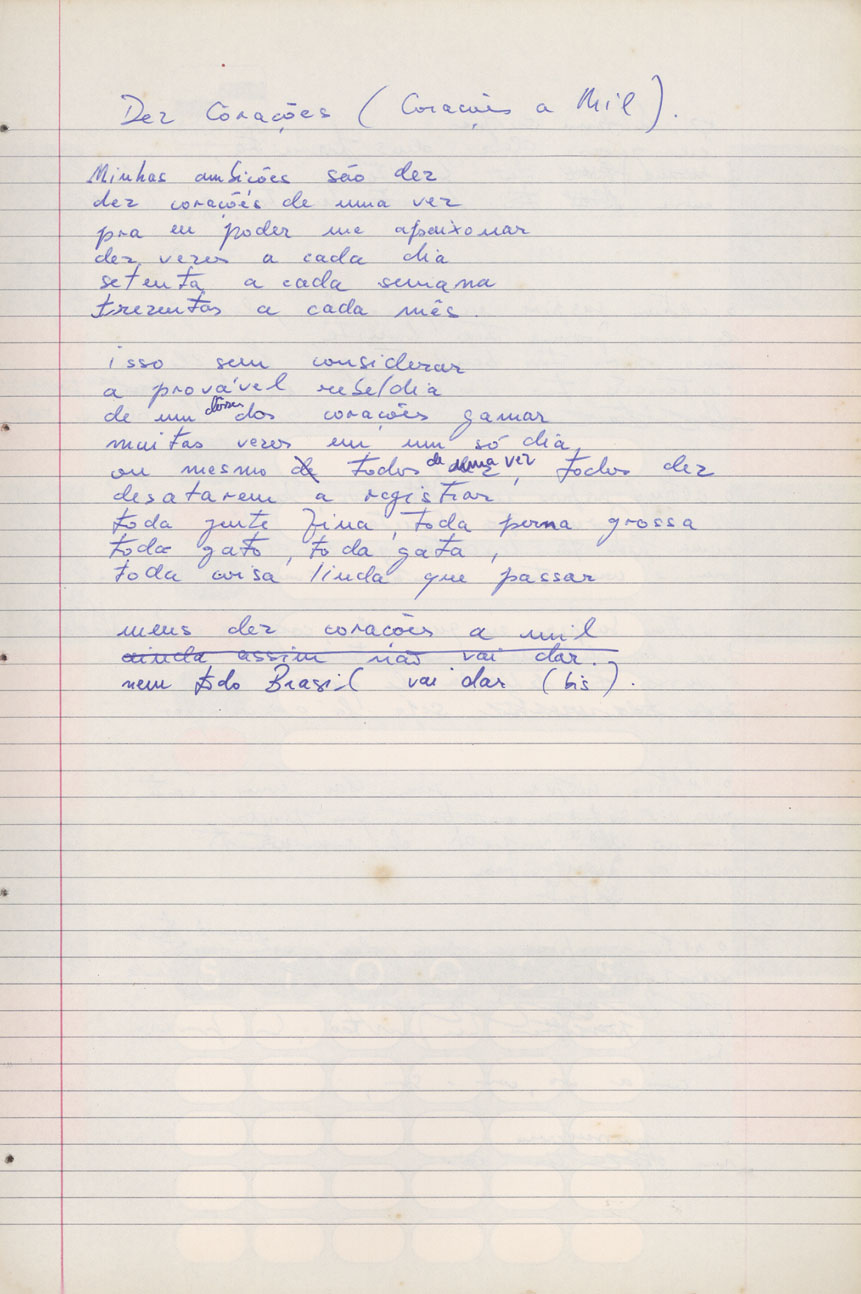 Dez Corações (Corações a Mil).
Minhas ambições são dez
dez corações de uma vez
pra eu poder me apaixonar
dez vezes a cada dia
setenta a cada semana
trezentas a cada mês.
isso sem considerar
a provável rebeldia
de um desses dos corações gamar
muitas vezes em um só dia,
ou mesmo de todos de uma vez, todos dez
desatarem a registrar
toda gente fina, toda perna grossa
todo gato, toda gata,
toda coisa linda que passar
meus dez corações a mil
ainda assim não vai dar.
nem todo Brasil vai dar (bis).